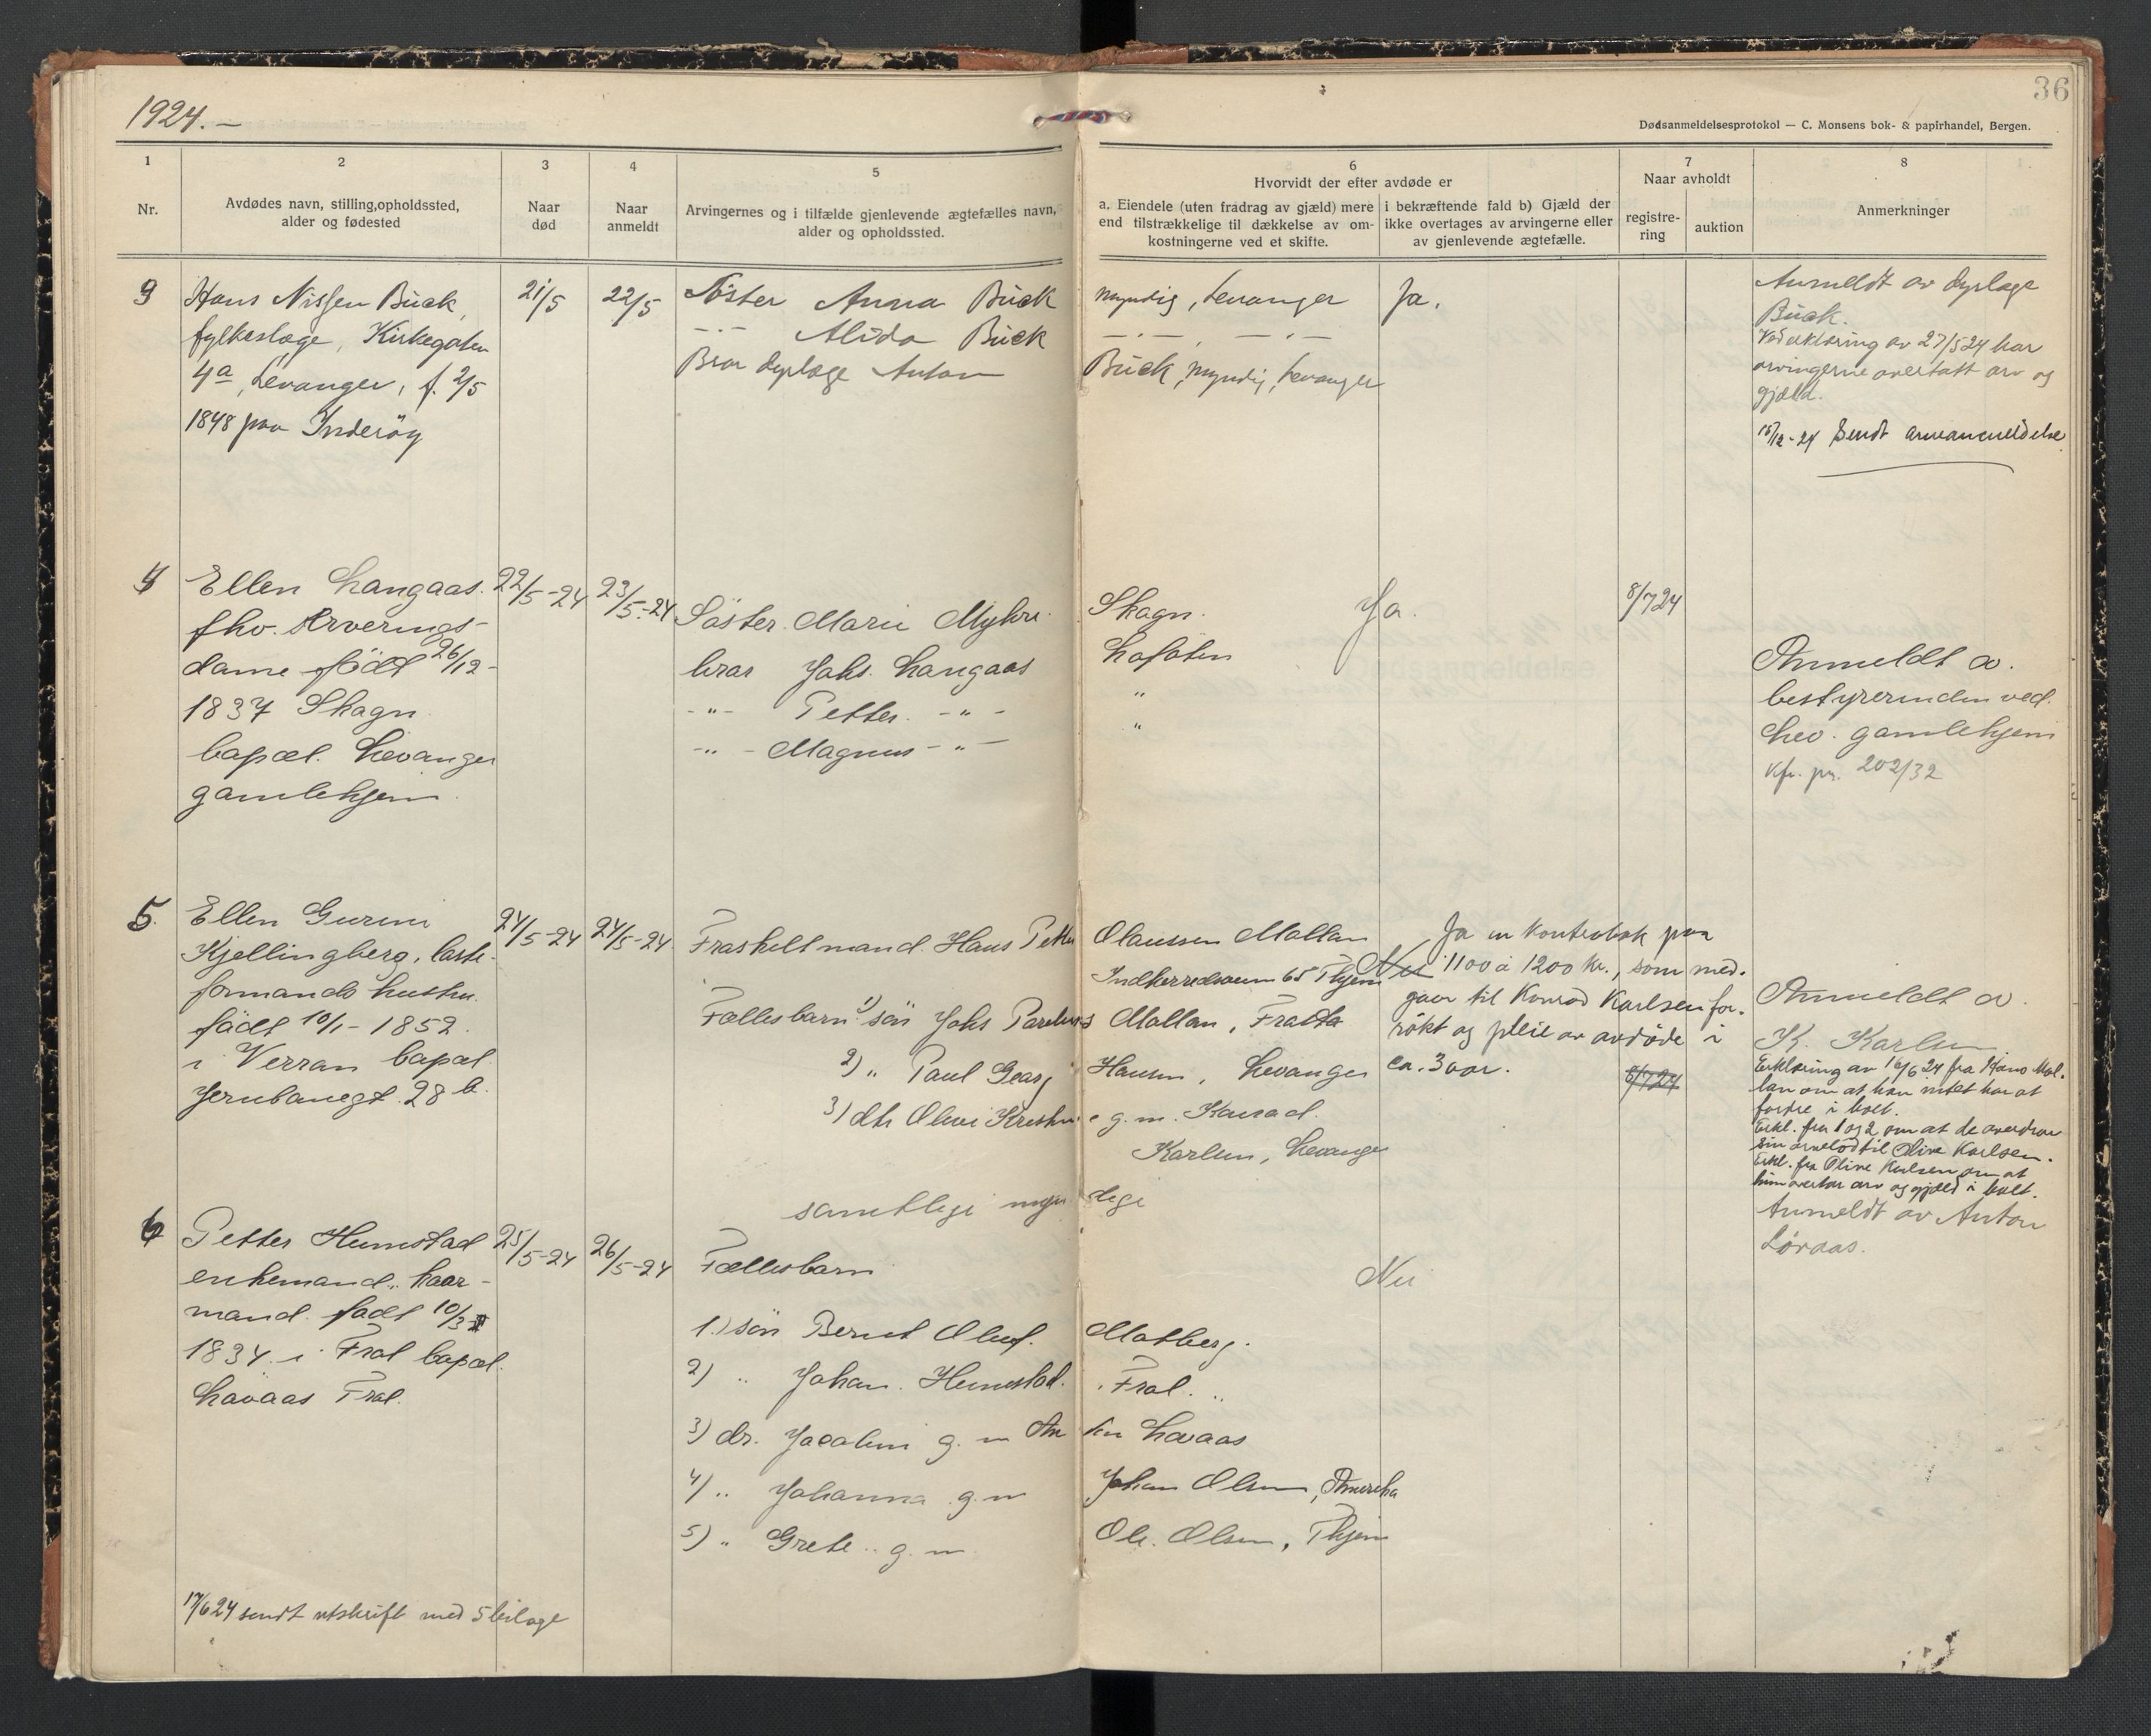 1924.-
36
Dødsanmeldelsesprotokol — C. Monsens bok- & papirhandel, Bergen.
1
2
3
4
5
6
7
8
Nr.
Avdødes navn, stilling,opholdssted,
alder og fødested
Naar
død
Naar
anmeldt
Arvingernes og i tilfælde gjenlevende ægtefælles navn,
alder og opholdssted.
Hvorvidt der efter avdøde er
a. Eiendele (uten fradrag av gjæld) mere
end tilstrækkelige til dækkelse av om-
kostningerne ved et skifte.
i bekræftende fald b) Gjæld der
ikke overtages av arvingerne eller
av gjenlevende ægtefælle.
Naar avholdt
registre-
ring
auktion
Anmerkninger
3 Hans Nissen Buck,
fylkeslæge, Kirkegaten
4a, Levanger, f. 2/5
1848 paa Inderøy
21/5
22/5
Søster Anna Buck myndig, Levanger
-"- Alida Buck -"- -"-
Bror dyrlæge Anton Buck, myndig, Levanger
Ja.
Anmeldt av dyrlæge
Buck.
Ved erklæring av 27/5 24 har
arvingerne overtatt arv og
gjæld.
15/12-24 Sendt arveanmeldelse
4 Ellen Langaas.
fhv.
dame født 26/12-
1837 Skogn
bopæl. Levanger
gamlehjem.
22/5-24
23/5-24
Søster. Marie Myhre. Skogn.
bror Johs. Langaas Lofoten
-"- Petter. -"- "
-"- Magnus -"- "
Ja.
8/7 24
Anmeldt av.
bestyrerinden ved.
Lev. gamlehjem
Kfr. pr. 202/32
5. Ellen Gurine
Kjellingberg, laste-
formands hustru.
født 10/1-1852.
i Verran bopæl
Jernbanegt. 28 b.
24/5-24
24/5-24
Fraskilt mand. Hans Petter Olaussen Mollan
Indherredsveien 65 Thjem
Fællesbarn 1) søn Johs Parelius Mollan, Frosta
2) " Paul Georg Hansen, Levanger
3) dtr Olive Kristine g. m. Konrad.
Karlsen, Levanger
samtlige myndige
Nei
Ja en kontrabok paa
1100 à 1200 kr., som med-
gaar til Konrad Karlsen for
røkt og pleie av avdøde i
ca. 3 aar.
8/7 24
Anmeldt av.
K. Karlsen
Erklæring av 16/6 24 fra Hans Mol-
lan om at han intet har at
fordre i boet.
Erkl. fra 1 og 2 om at de overdrar
sin arvelod til Olive Karlsen.
Erkl. fra Olive Karlsen om at
hun overtar arv og gjæld i boet.
6 Petter Hemstad
enkemand,
mand. født 10/3
1834. i Frol bopæl.
Lovaas Frol.
25/5-24
26/5-24
Fællesbarn
1.) søn Bernt Oluf. Motberg.
2) " Johan. Hemstad. Frol. "
3) dr. Jacobine g. m Anton Lovaas
4) " Johanna g. m Johan Olsen, Amerika
5) " Grete " g. m. Ole. Olsen, Thjem
Nei
Anmeldt av Anton
Lovaas.
17/6 24 sendt utskrift med 5 bilage